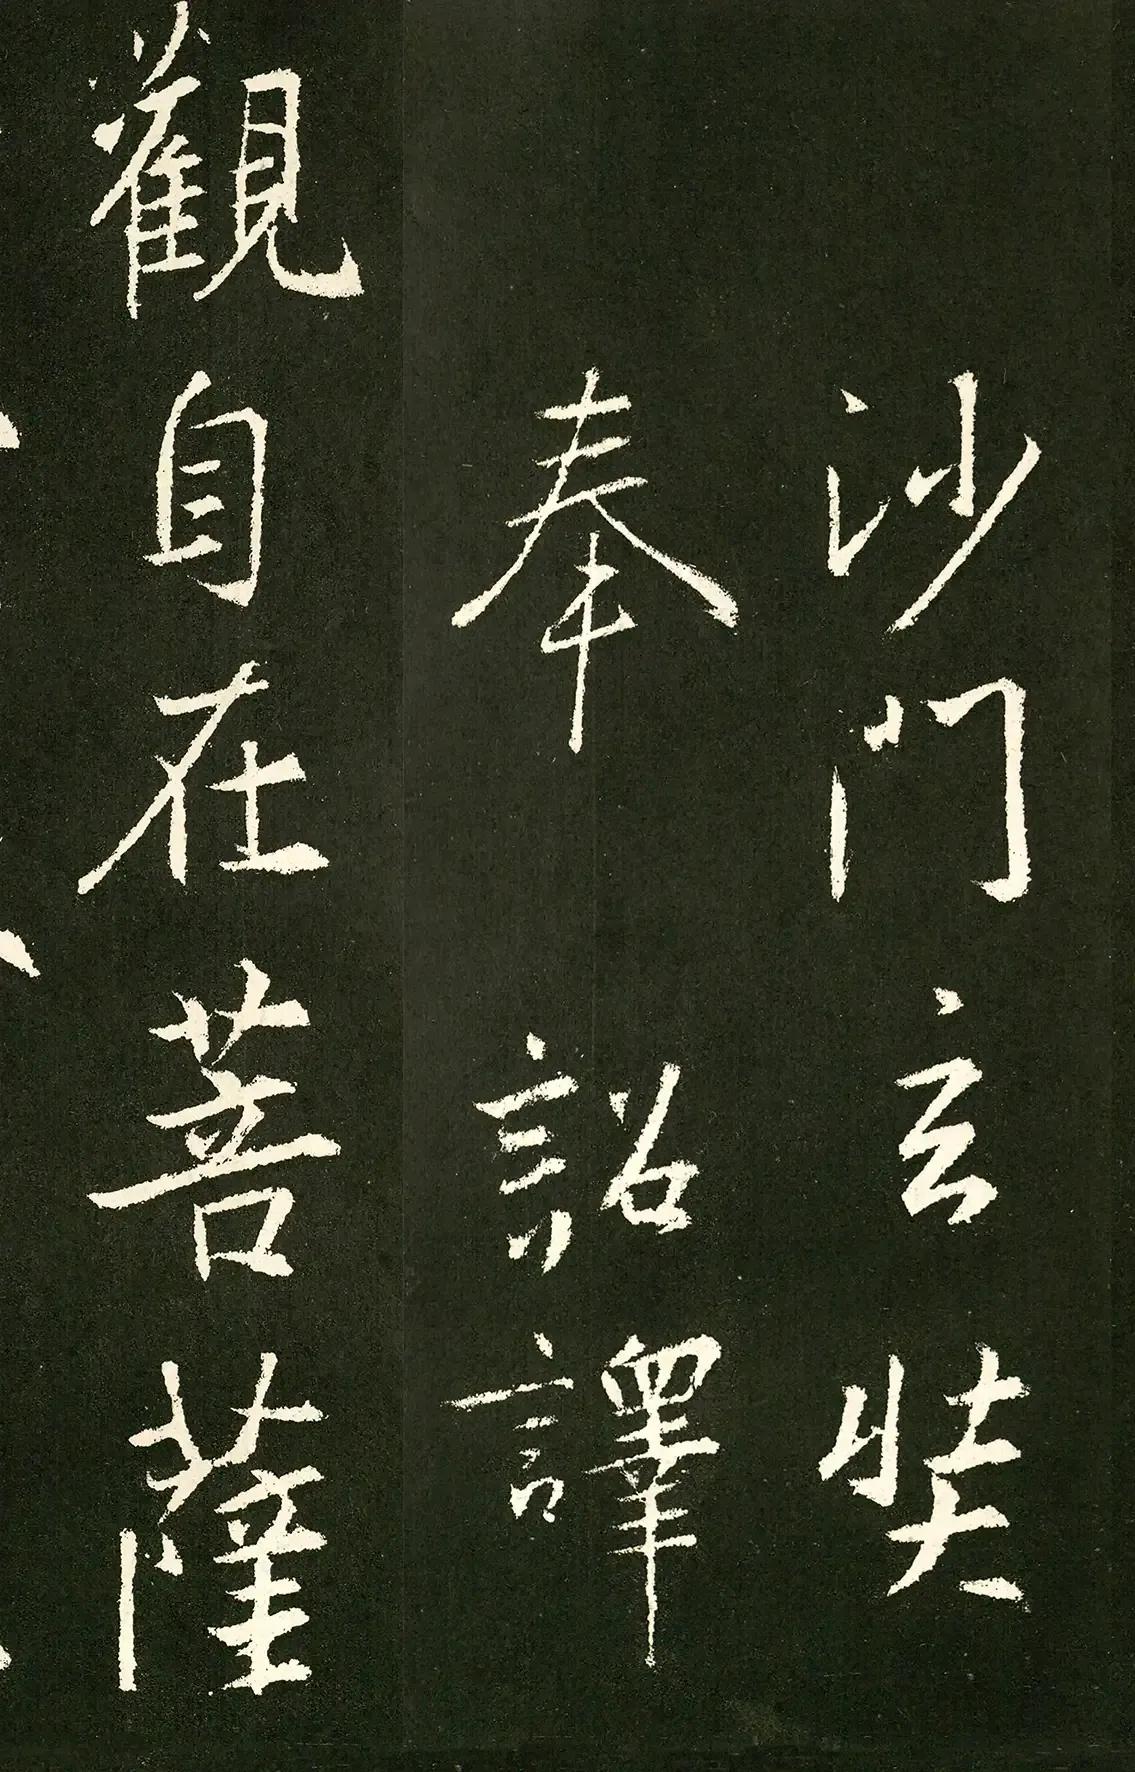 沙門玄奘
奉 詔譯
觀自在菩薩